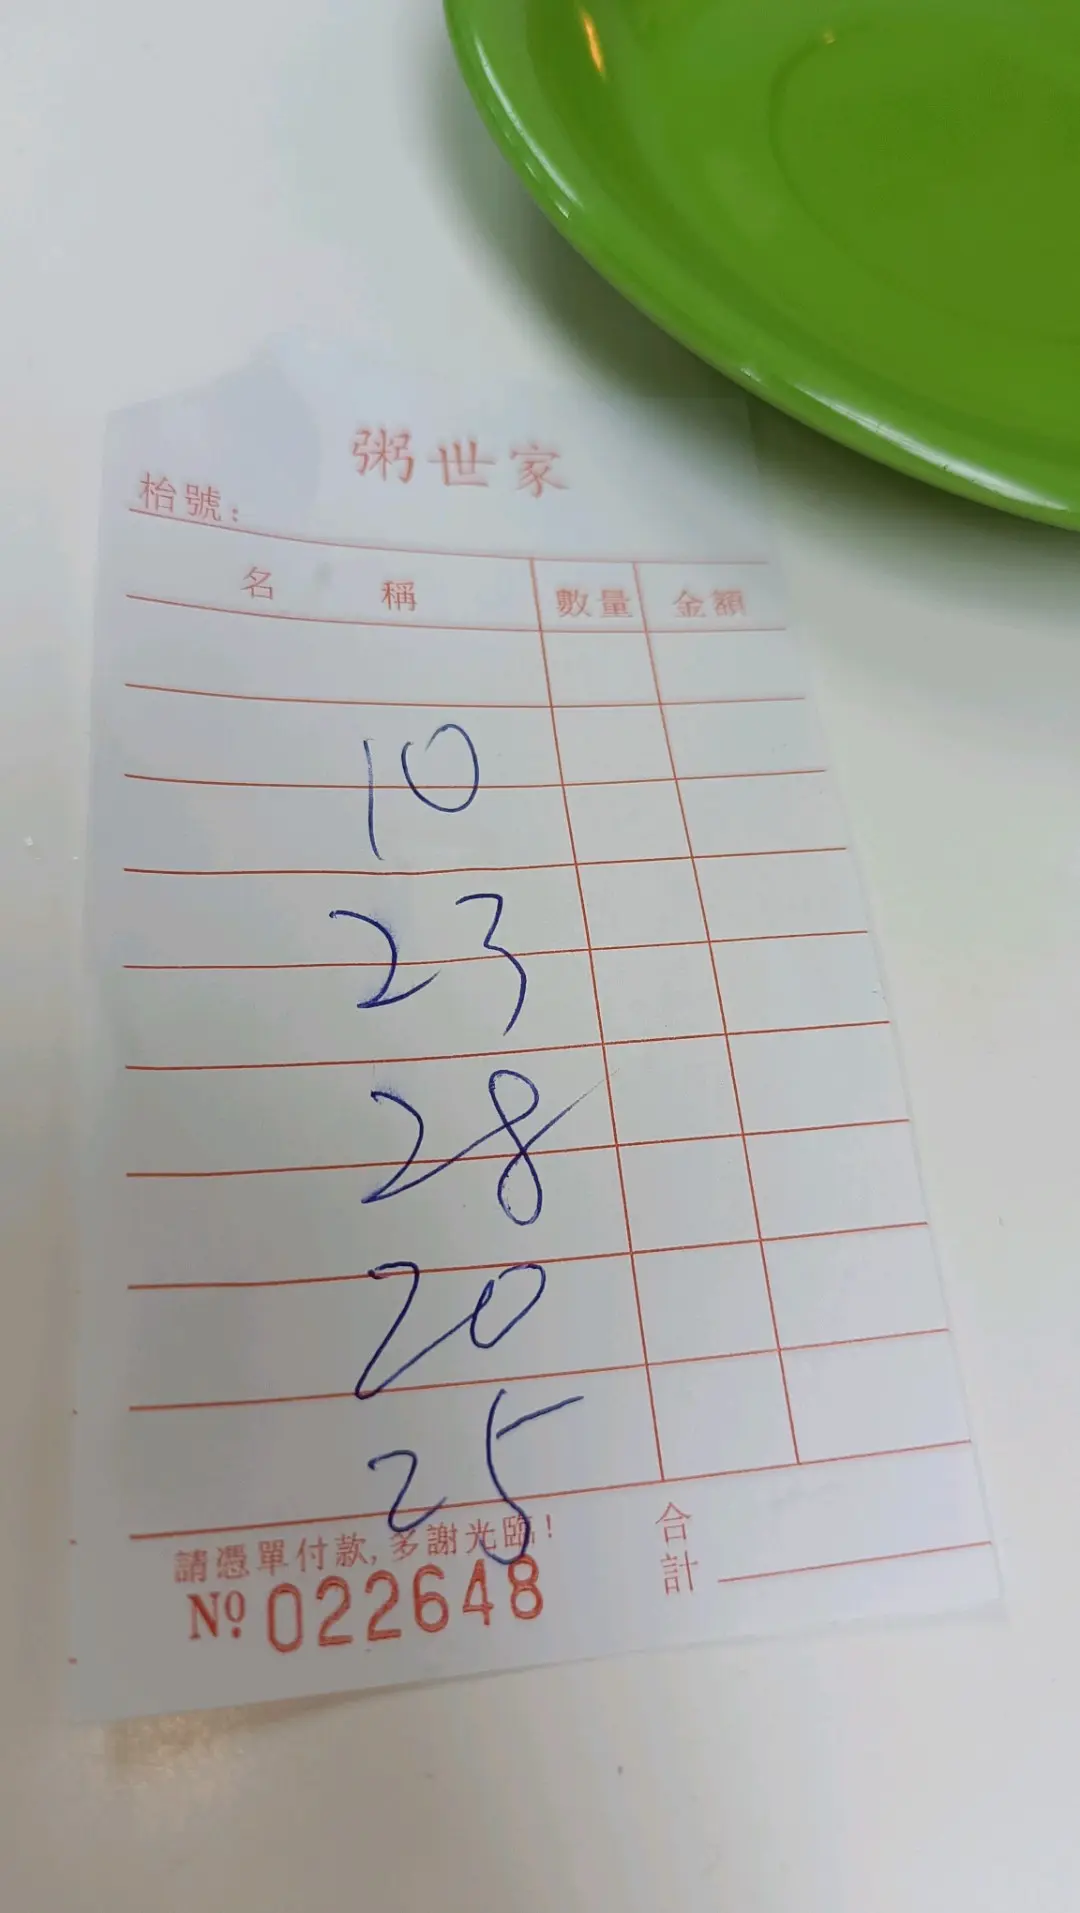 粥世家
枱號：
名 稱 數量 金額
10
23
28
20
25
請憑單付款,多謝光臨!
合計
Nº 022648